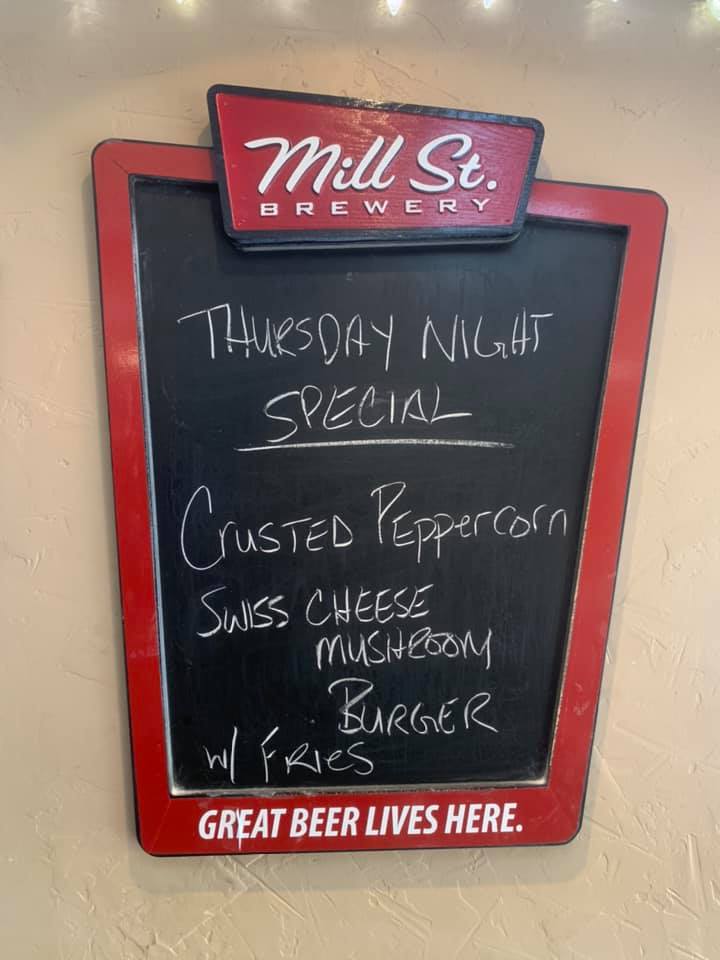 Mill St.
BREWERY
THURSDAY NIGHT
SPECIAL
CRUSTED PEPPercorn
SWISS CHEESE
MUSHROOM
BURGER
W/ FRIES
GREAT BEER LIVES HERE.